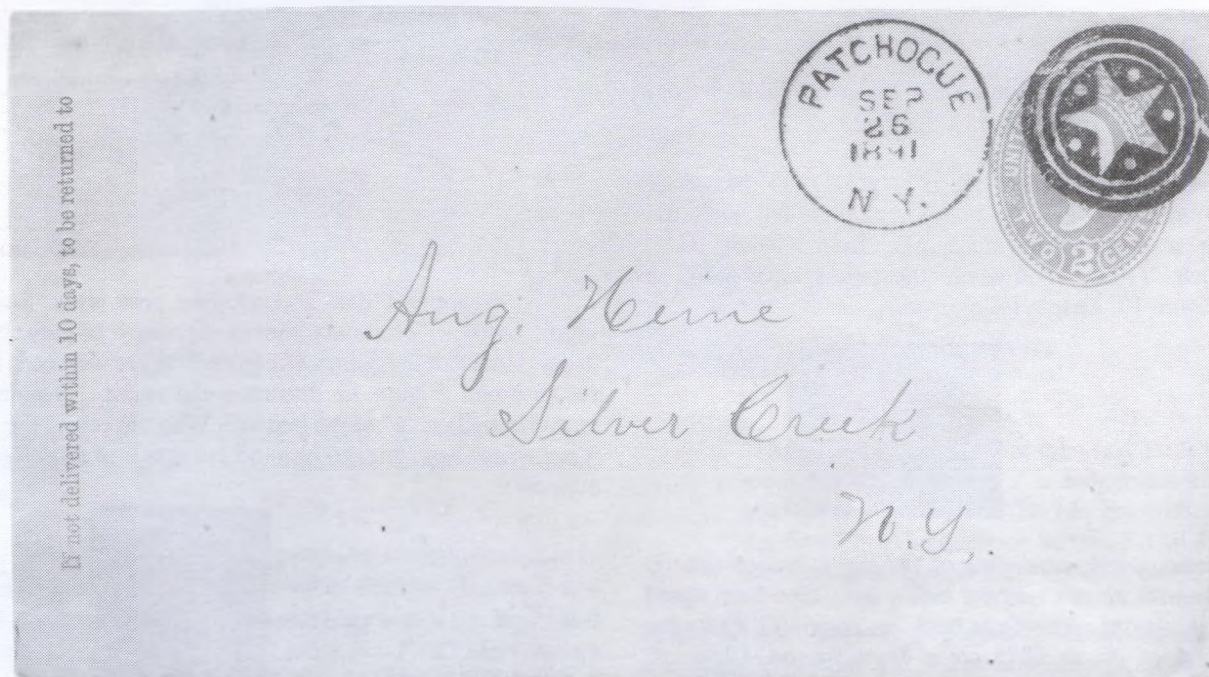 If not delivered within 10 days, to be returned to
PATCHOGUE
SEP
26
1891
N Y.
TWO 2 CENT
Aug. Heine
Silver Creek
N.Y.